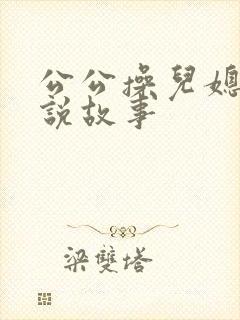 公公操兒媳
說故事
梁雙塔